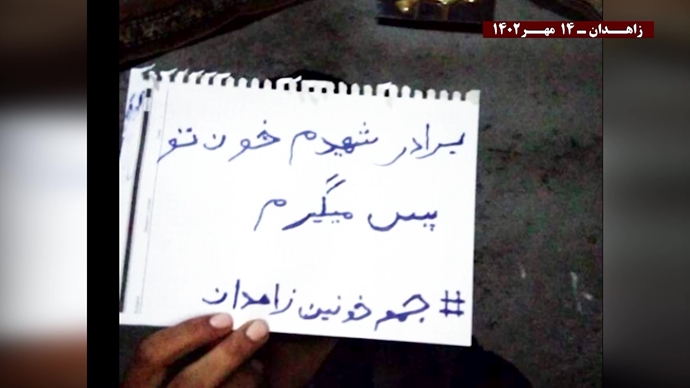 زاهدان ـ ۱۴ مهر ۱۴۰۲
برادر شهیدم خون تو
پس میگیرم
# جمعه خونین زاهدان